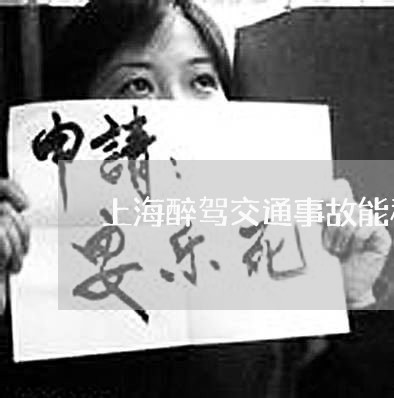 申請：
上海醉驾交通事故能
安乐死